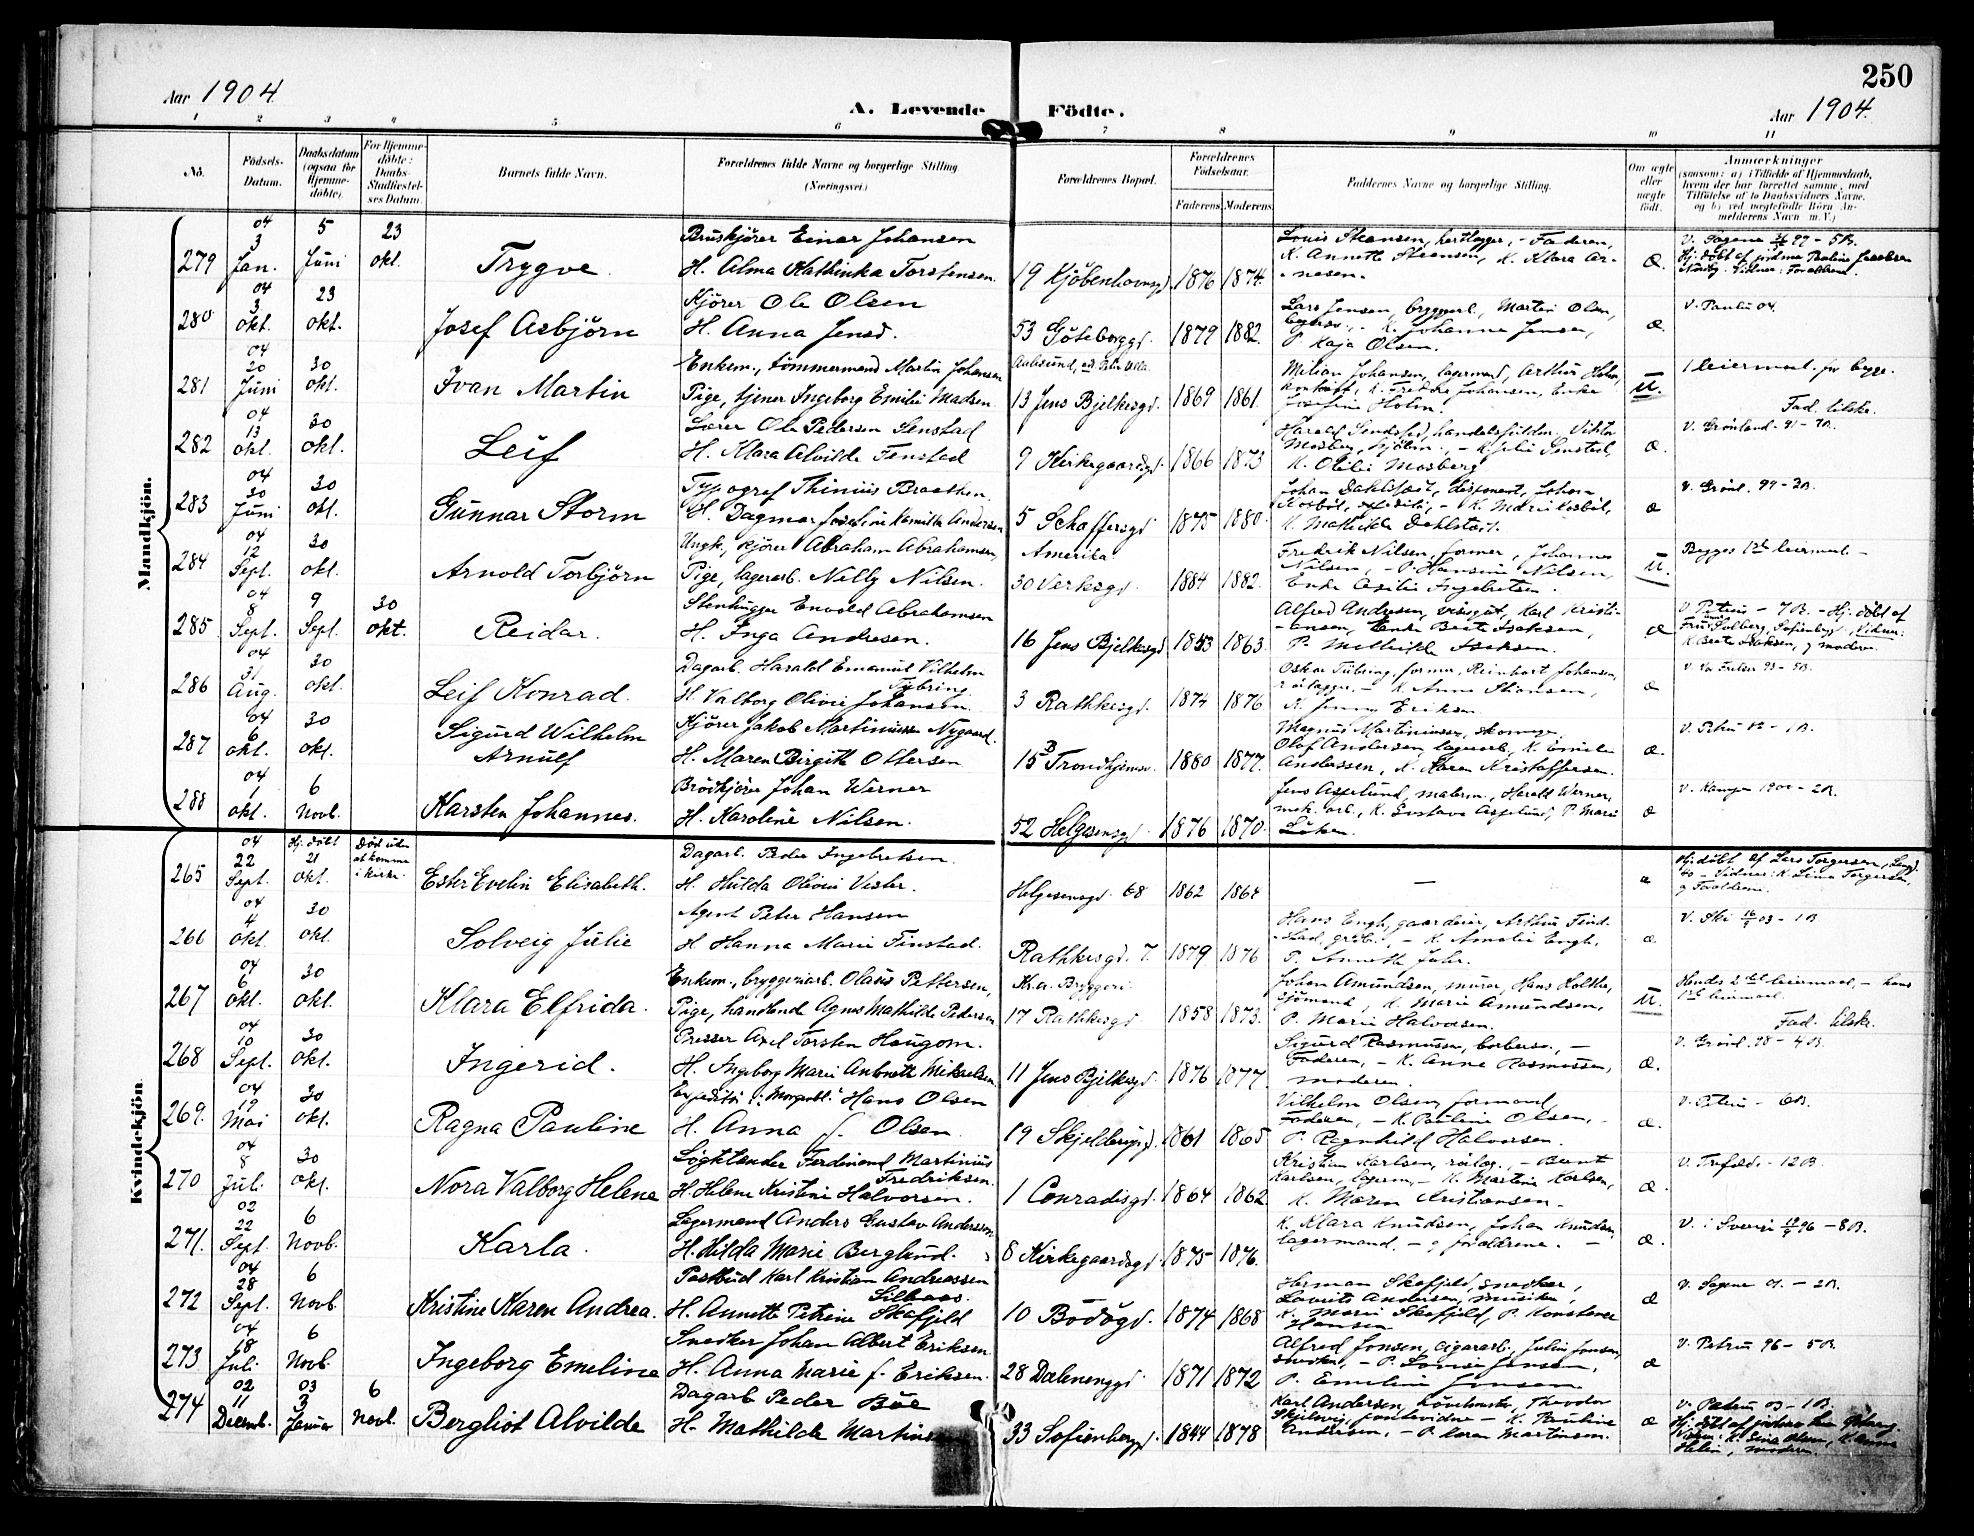 250
Aar 1904.
A. Levende Födte.
Aar 1904.
1 2 3 4 5 6 7 8 9 10 11
No.
Födsels-Datum.
Daabsdatum (ogsaa for Hjemmedöbte).
For Hjemmedöbte: Daabs-Stadfæstelses Datum.
Barnets fulde Navn.
Forældrenes fulde Navne og borgerlige Stilling (Næringsvei.)
Forældrenes Bopæl.
Forældrenes Födselsaar.
Faderens. Moderens.
Faddernes Navne og borgerlige Stilling.
Om ægte eller uægte födt.
Anmærkninger
(saasom: a) i Tilfælde af Hjemmedaab,
hvem der har forrettet samme, med
Tilföielse af to Daabsvidners Navne,
og b) ved uægtefödte Börn Anmelderens Navn m. V.)
Mandkjön.
279 04 3 Jan. 5 Juni 23 okt. Trygve.
Bruskjörer Einar Johansen
H. Alma Kathinka Torstensen.
19 Kjöbenhavngd. 1876 1874.
Faderen,
æ.
280 04 3 okt. 23 okt. Josef Asbjörn
Kjörer Ole Olsen
H. Anna Jensd.
53 Göteborggd. 1879 1882.
Lars Jensen, bryggerl., Martin Olsen,
K. Johanne Jensen,
P. Kaja Olsen.
æ.
V. Paulus 04.
281 04 20 Juni 30 okt. Ivan Martin
Enkem., tömmermand Martin Johansen
Pige, tjener Ingeborg Emilie Madsen.
13 Jens Bjelkesgd. 1869 1861.
Milian Johansen, lagermand, Arthur Holm,
Josefine Holm.
u.
1 leiermaal for begge.
Fad. tilste.
282 04 13 okt. 30 okt. Leif
Lærer Ole Pedersen Senstad
H. Klara Alvilde Finstad
9 Kirkegaardsgd. 1866 1873
K. Otilie Mosberg
æ.
V. Grönland 91 - 7B.
283 04 30 Juni 30 okt. Gunnar Storm
Typograf Thinius Braathen.
H. Dagmar Josefine Kamilla Andersen
5 Schaffersgd 1875 1880.
K. Mathilde Dahlstöst.
æ
V. Grönl. 99 - 2B.
284 04 12 Sept. 30 okt. Arnold Torbjörn
Ungk., kjörer Abraham Abrahamsen,
Pige, lagerarb. Nelly Nilsen.
Amerika.
30 Verksgd. 1884 1882.
Fredrik Nilsen, former, Johannes
Nilsen, - P. Hansine Nilsen,
Enke Cecilie Ingebretsen.
u.
Begges 1ste leiermaal -
285 04 8 Sept. 9 Sept. 30 okt. Reidar.
Stenhugger Envold Abrahamsen
H. Inga Andresen.
16 Jens Bjelkesgd 1853 1863.
Alfred Andresen, visergut, Karl Kristi-
ansen, Enke Berte Isaksen,
P. Mathilde Isaksen.
æ
V. Petrus - 7B. - Hj. döbt af
Fru Solberg, Sofienbgd., Vidner:
K. Berte Isaksen, og moderen.
286 04 31 Aug. 30 okt. Leif Konrad.
Dagarb. Harald Emanuel Vilhelm Tybring
H. Valborg Olivie Johansen.
3 Rathkesgd. 1874 1876
Oskar Tübring, former, Reinhart Johansen,
K. Jenny Eriksen
æ
287 04 6 okt. 30 okt. Sigurd Wilhelm Arnulf
Kjörer Jakob Martiniussen Nygaard.
H. Maren Birgith Ottersen
15 B Trondhjemsv. 1880 1877.
Magnus Martiniussen, skomager,
Olaf Andersen, lagerarb., K. Emilie
Anderssen, K. Karen Kristoffersen.
æ.
V. Petrus 02 - 1B.
288 04 1 okt. 6 Novb. Karsten Johannes.
Brödkjörer Johan Werner
H. Karoline Nilsen.
52 Helgesensgd. 1876 1870.
Jens Asplund, malerm., Harald Werner,
mek. arb., K. Gustava Asplund, P. Marie
Löken.
æ
V. Kampen 1900 - 2B.
Kvindekjön.
265 04 22 Sept. Hj. döbt 21 okt. Död uden at komme i kirke. Ester Evelin Elisabeth.
Dagarb. Peder Ingebretsen.
H. Hulda Olivie Vester.
Helgesensgd. 68 1862 1864
—
æ
Hj. döbt af Lars Torgersen,
Vidner: K. Lina Torgersen,
og Forældrene.
266 04 4 okt. 30 okt. Solveig Julie
Agent Peter Hansen
H. Hanna Marie Finstad.
Rathkesgd. 7. 1879 1876
Hans Engh, gaardeier, Arthur Find-
stad, K. Amalie Engh,
æ.
V. Ski 03 - 1B
267 04 6 okt. 30 okt. Klara Elfrida.
Enkem., bryggeriarb. Olaus Pettersen,
Pige, handlende Agnes Mathilde Pedersen
Kr.a. Bryggeri.
17 Rathkesgd 1858 1873.
Johan Amundsen, murer, Hans Holthe,
sjömand, K. Marie Amundsen,
P. Marie Halvorsen.
u.
Hendes 2det leiermaal, - hans
1ste leiermaal.
Fad. tilste.
268 04 10 Sept. 30 okt. Ingerid.
Presser Axel Torsten Haugom.
H. Ingeborg Marie Antonette Mikaelsen
11 Jens Bjelkesgd. 1876 1877
Sigurd Rasmussen, barbersv., -
Faderen, - K. Anne Rasmussen,
moderen.
æ.
V. Grönl. 98 - 4B.
269. 04 19 Mai 30 okt. Ragna Pauline
Expeditör i "Morgenbl." Hans Olsen
H. Anna f. Olsen
19 Skjeldrupsgd. 1861 1865
Vilhelm Olsen, formand,
Faderen, - K. Pauline Olsen, -
P. Ragnhild Halvorsen.
æ.
V. Petrus - 6B.
270 04 8 Juli. 30 okt. Nora Valborg Helene
Lögttænder Ferdinand Martinius Fredriksen.
H. Helene Kristine Halvorsen.
1 Conradisgd. 1864 1862
Kristian Karlsen, rörlæg., - Bernt
Karlsen, lagerm., - K. Martine Karlsen,
K. Maren Kristiansen.
æ.
V. Trefold. - 12B.
271. 02 22 Sept. 6 Novb. Karla.
Lagermand Anders Gustav Andersson
H. Hilda Marie Berglund.
8 Kirkegaardsgd. 1875 1876.
K. Klara Knudsen, Johan Knudsen
lagermand. - og forældrene. -
æ.
V. i Sverige 96 - 8B.
272 04 28 Sept. 6 Novb. Kristine Karen Andrea.
Postbud Karl Kristian Andreassen Silbaas.
H. Annette Petrine Skafjeld
10 Bodögd. 1874 1868
Herman Skafjeld, snedker,
Lauritz Andersen, musiker,
K. Marie Skafjeld, P. Konstanse
Hansen
æ
V. Sagene 01. - 2B.
273 04 18 Juli. 6 Novb. Ingeborg Emeline
Snedker Johan Albert Eriksen
H. Anna Marie f. Eriksen.
28 Dælenenggd. 1871 1872
Alfred Jonsen, cigararb., Julius Jonsen,
snedker, - P. Lovise Jonsen,
P. Emeline Jonsen
æ
V. Petrus 96 - 5B.
274 02 11 Decemb. 03 3 Januar 6 Novb. Bergliot Alvilde
Dagarb. Peder Böe
H. Mathilde Martinsen
33 Sofienberggd. 1844 1878
Karl Andersen, Theodor
K. Pauline
Andersen, - P. Karen Martinsen.
æ
V. Petrus 03 - 1B.